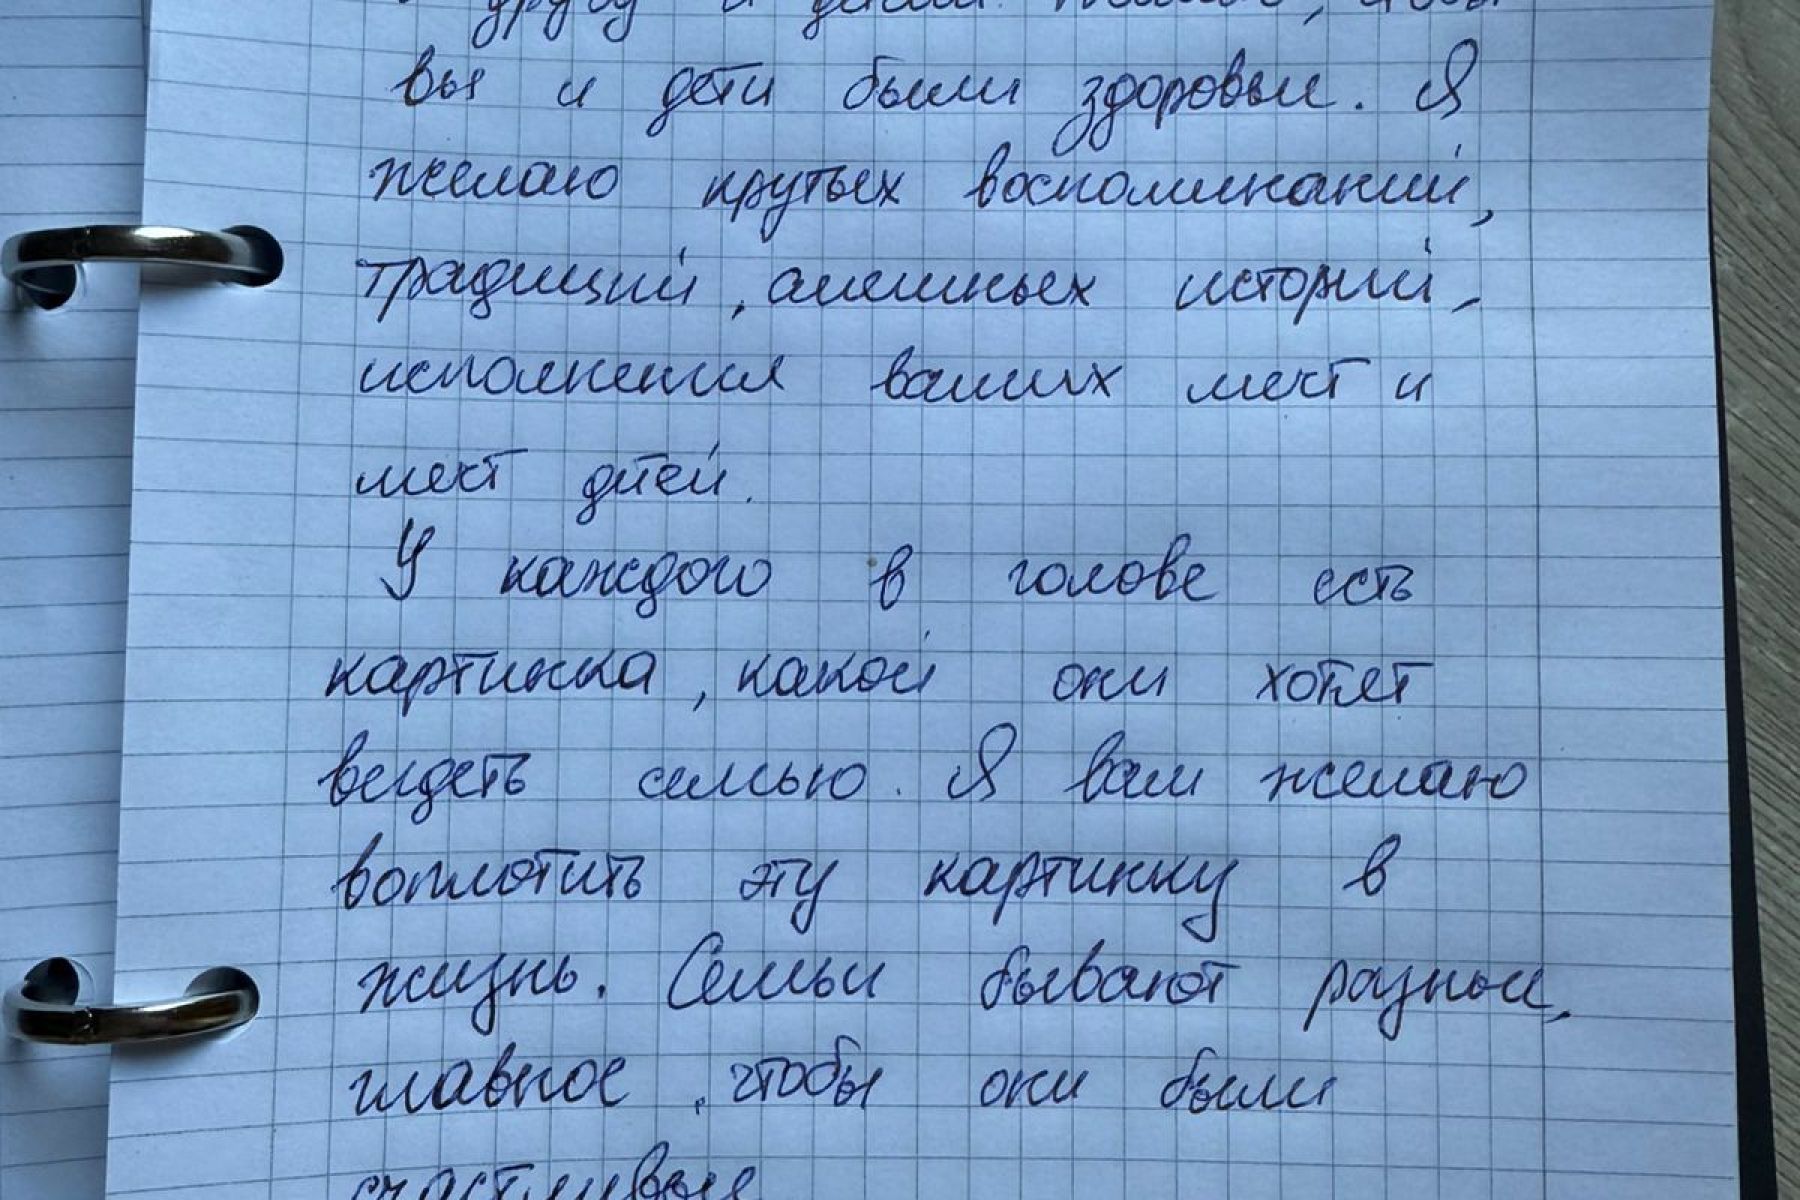 другу и детям. Желаю, чтобы
вы и дети были здоровы. Я
желаю крутых воспоминаний,
традиций, смешных историй,
исполнения ваших мечт и
мечт дтей.
У каждого в голове есть
картинка, какой они хотят
видеть семью. Я вам желаю
воплотить эту картинку в
жизнь. Семьи бывают разные,
главное, чтобы они были
счастливые